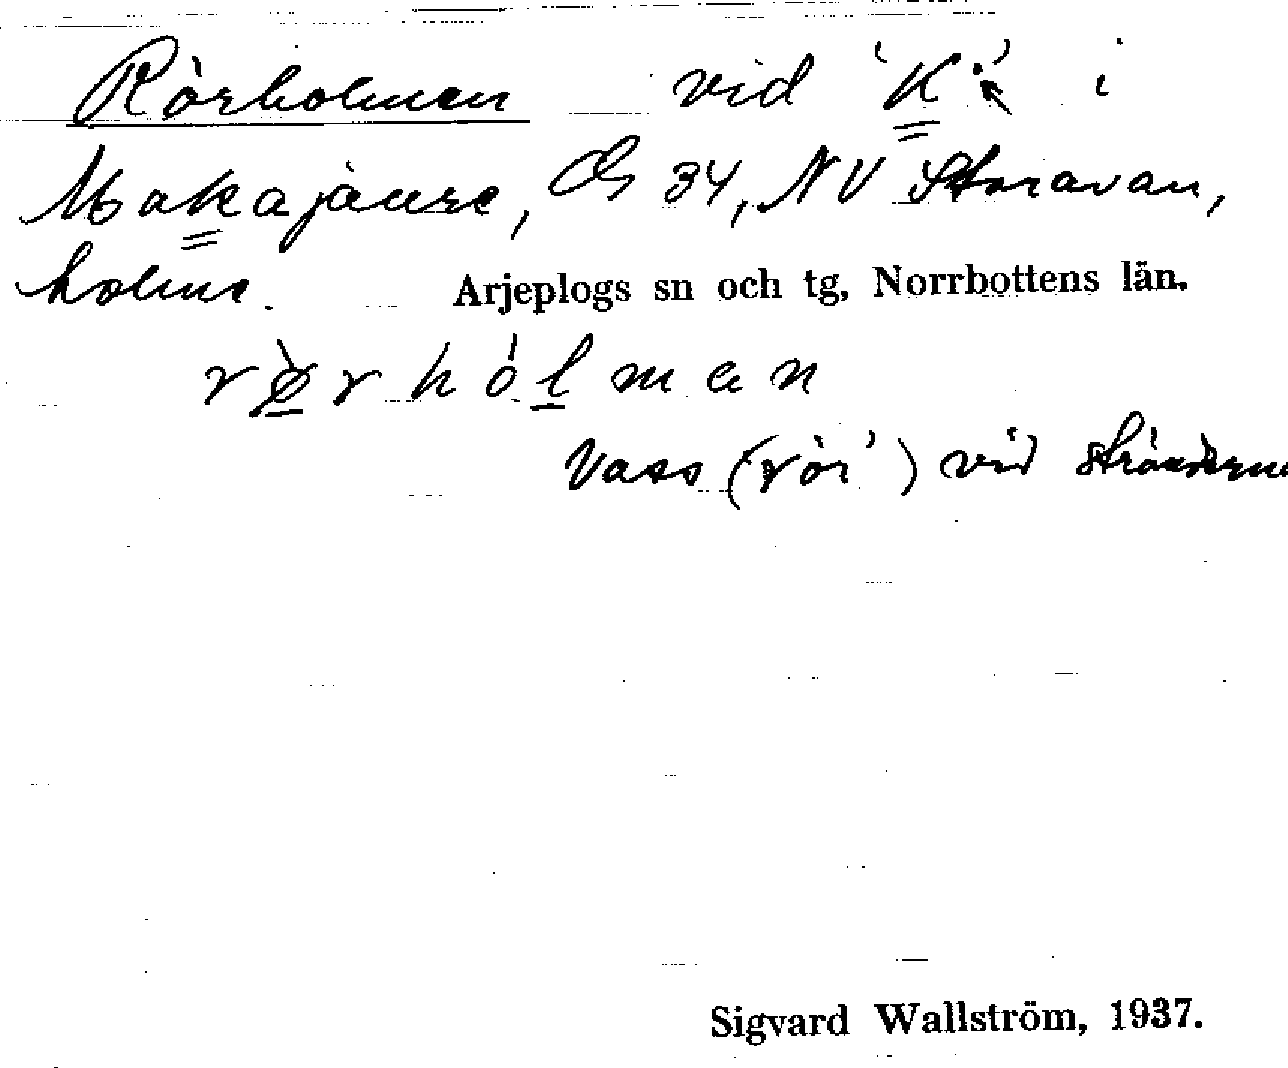 Rörholmen vid 'K' i
Makajaure, Gs 34, NV Storavan,
holme. Arjeplogs sn och tg, Norrbottens län.
rø̀rhólman
Vass (rör') vid stränderna
Sigvard Wallström, 1937.